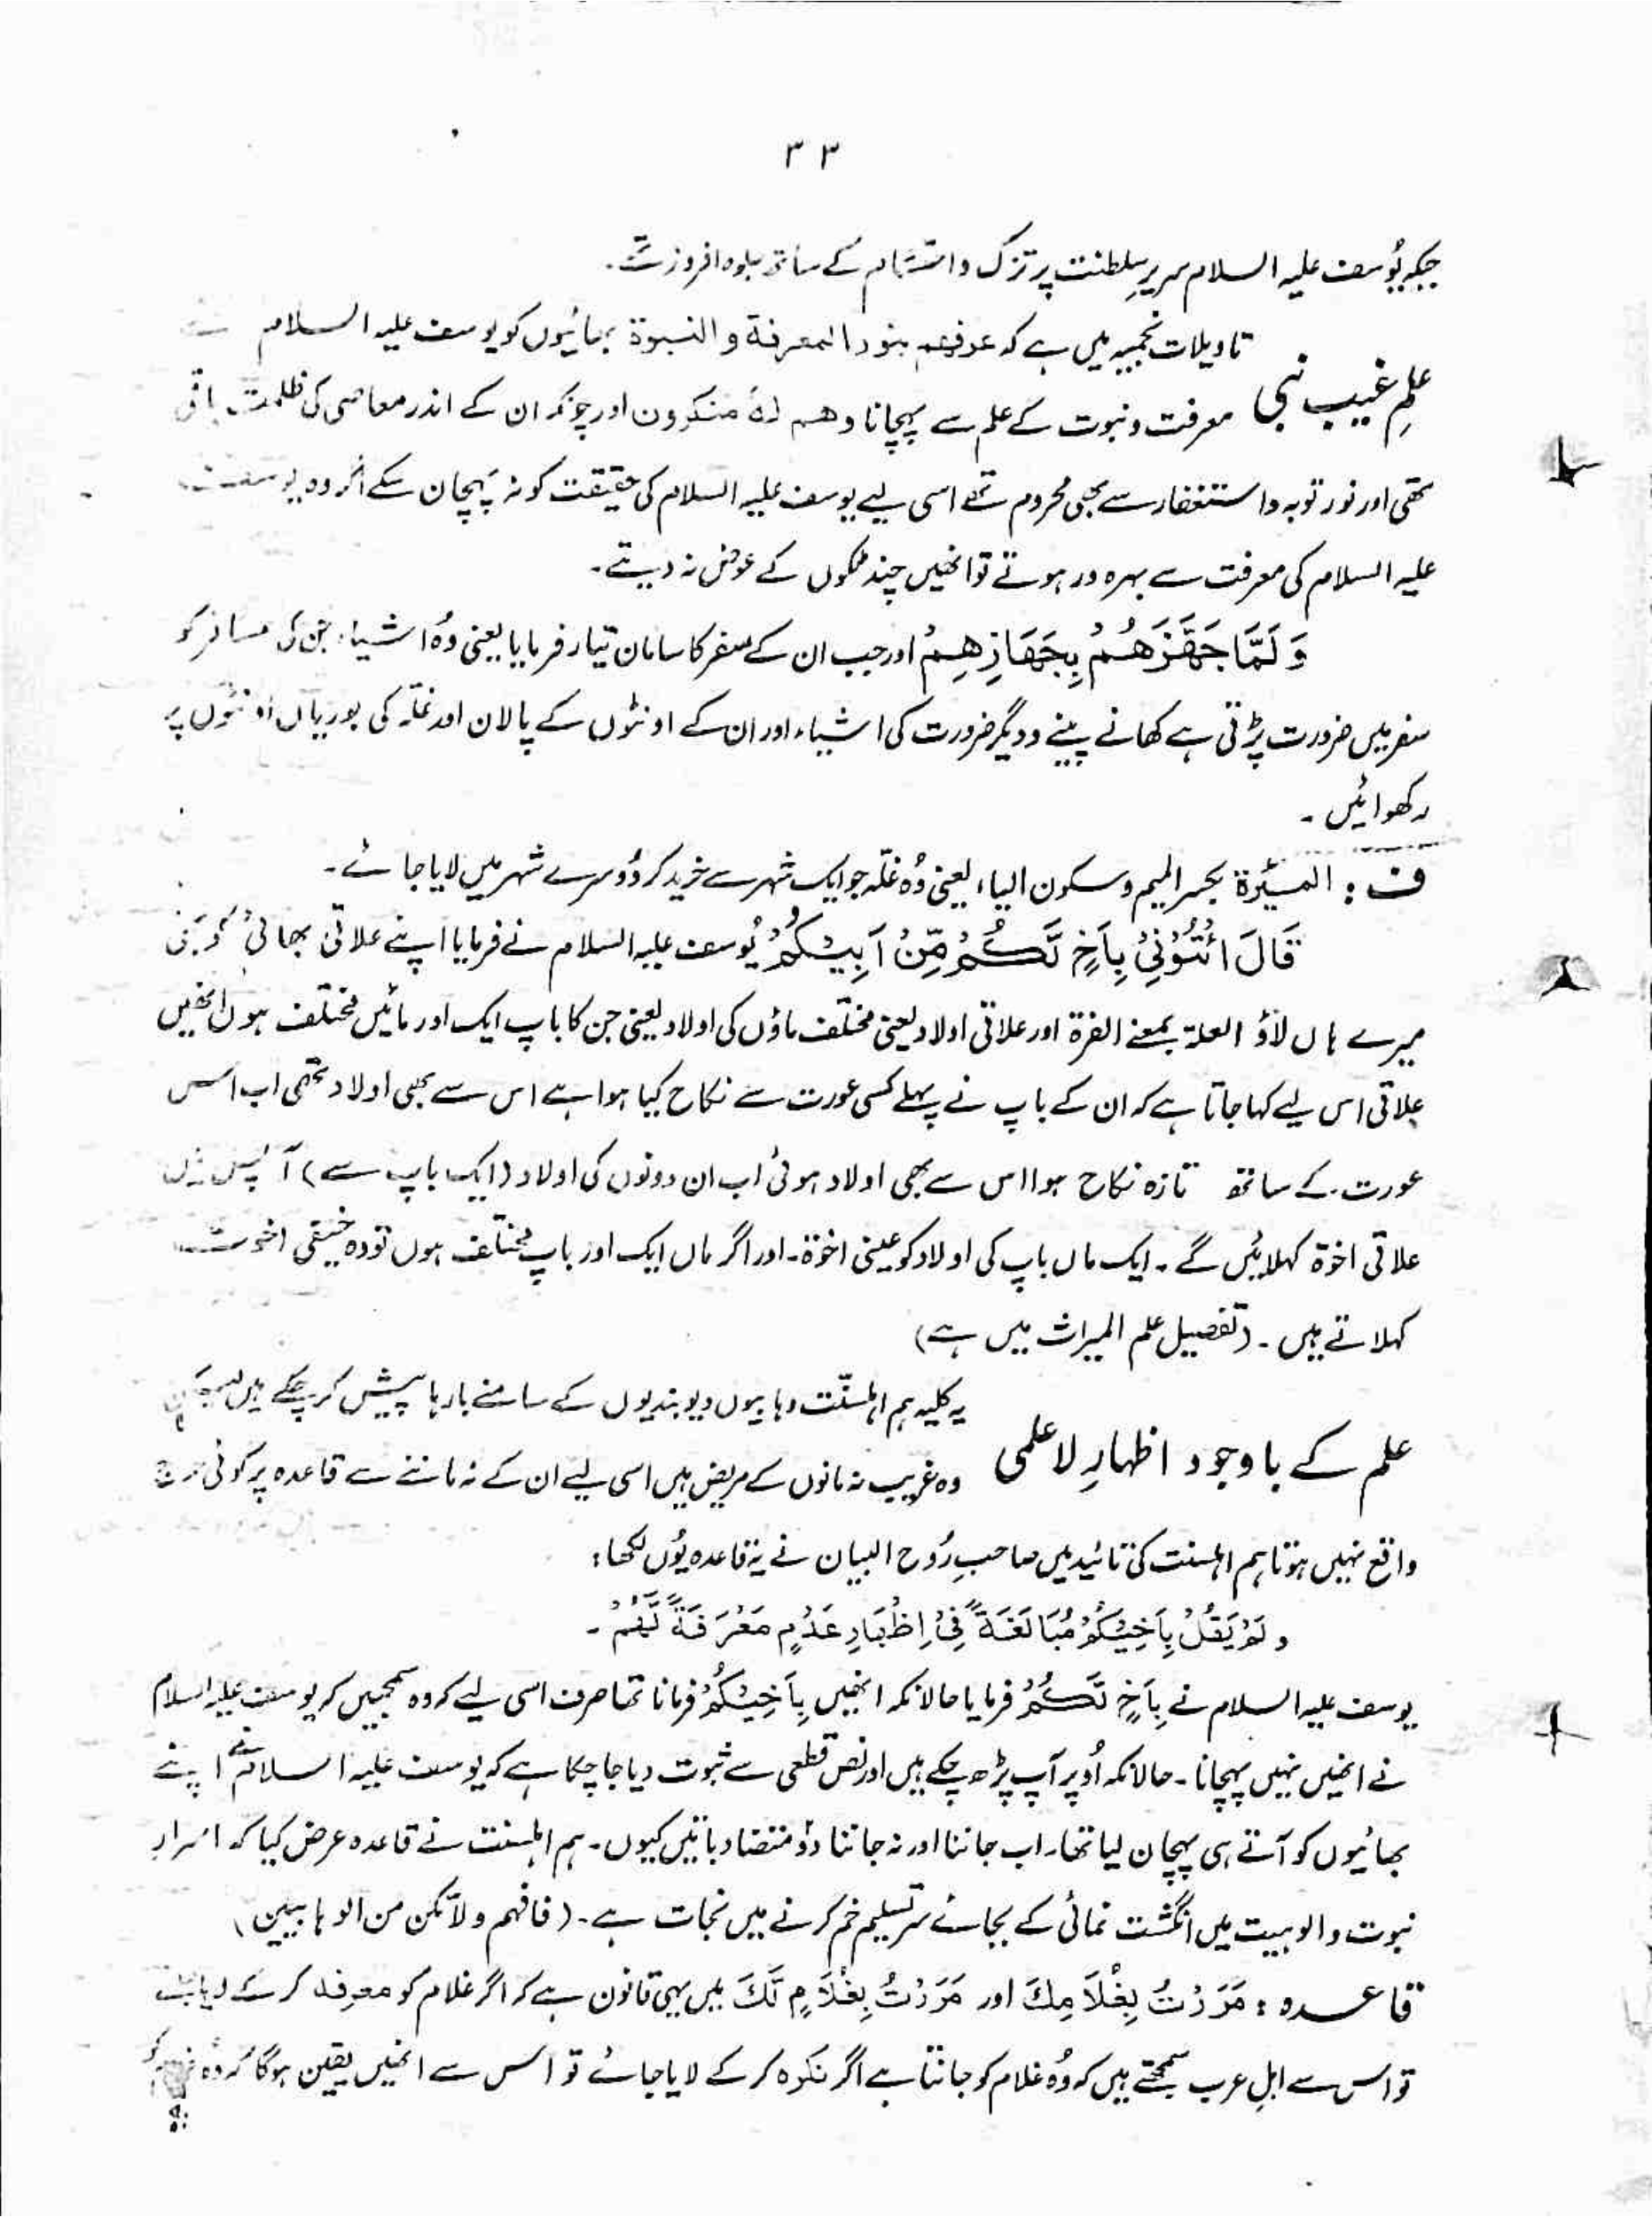 ۳۳
جبکہ یُوسف علیہ السلام سریرِ سلطنت پر تزک و احتشام کے ساتھ جلوہ افروز تھے۔
تاویلات نجمیہ میں ہے کہ عرفھم بنور المعرفة و النبوة بھائیوں کو یوسف علیہ السلام نے
علمِ غیب نبی معرفت و نبوت کے علم سے پہچانا وھم لہٗ منکرون اور چونکہ ان کے اندر معاصی کی ظلمت باقی
تھی اور نور توبہ و استغفار سے بھی محروم تھے اسی لیے یوسف علیہ السلام کی حقیقت کو نہ پہچان سکے اگر وہ یوسف
علیہ السلام کی معرفت سے بہرہ ور ہوتے تو انھیں چند ٹکوں کے عوض نہ دیتے۔
وَ لَمَّا جَهَّزَهُمْ بِجَهَازِهِمْ اور جب ان کے سفر کا سامان تیار فرمایا یعنی وُہ اشیاء جن کی مسافر کو
سفر میں ضرورت پڑتی ہے کھانے پینے و دیگر ضرورت کی اشیاء اور ان کے اونٹوں کے پالان اور غلّہ کی بوریاں اونٹوں پر
رکھوائیں۔
ف : المیرة بکسر المیم و سکون الیاء یعنی وُہ غلّہ جو ایک شہر سے خرید کر دُوسرے شہر میں لایا جائے۔
قَالَ ائْتُوْنِیْ بِاَخٍ لَّكُمْ مِّنْ اَبِیْكُمْ یُوسف علیہ السلام نے فرمایا اپنے علاتی بھائی کو بھی
میرے ہاں لاؤ العلة بمعنے الضرة اور علاتی اولاد یعنی مختلف ماؤں کی اولاد یعنی جن کا باپ ایک اور مائیں مختلف ہوں انھیں
علاتی اس لیے کہا جاتا ہے کہ ان کے باپ نے پہلے کسی عورت سے نکاح کیا ہوا ہے اس سے بھی اولاد تھی اب اس
عورت کے ساتھ تازہ نکاح ہوا اس سے بھی اولاد ہوئی اب ان دونوں کی اولاد (ایک باپ سے) آپس میں
علاتی اخوة کہلائیں گے۔ ایک ماں باپ کی اولاد کو عینی اخوة۔ اور اگر ماں ایک اور باپ مختلف ہوں تو وہ
کہلاتے ہیں۔ (تفصیل علم المیراث میں ہے)
یہ کلیہ ہم اہلسنّت وہابیوں دیوبندیوں کے سامنے بارہا پیش کر چکے ہیں لیکن
علم کے باوجود اظہارِ لاعلمی وہ غریب نہ مانوں کے مریض ہیں اسی لیے ان کے نہ ماننے سے قاعدہ پر کوئی حرج
واقع نہیں ہوتا ہم اہلسنت کی تائید میں صاحبِ رُوح البیان نے یہ قاعدہ یُوں لکھا :
و لَمْ یَقُلْ بِاَخِیْكُمْ مُبَالَغَةً فِیْ اِظْهَارِ عَدْمِ مَعْرَفَةً لَّهُمْ۔
یوسف علیہ السلام نے بِاَخٍ لَّكُمْ فرمایا حالانکہ انھیں بِاَخِیْكُمْ فرمانا تھا صرف اسی لیے کہ وہ سمجھیں کہ یوسف علیہ السلام
نے انھیں نہیں پہچانا۔ حالانکہ اُوپر آپ پڑھ چکے ہیں اور نص قطعی سے ثبوت دیا جا چکا ہے کہ یوسف علیہ السلام نے اپنے
بھائیوں کو آتے ہی پہچان لیا تھا۔ اب جاننا اور نہ جاننا دو متضاد باتیں کیوں۔ ہم اہلسنت نے قاعدہ عرض کیا کہ اسرارِ
نبوت و الوہیت میں انگشت نمائی کے بجائے سرِ تسلیم خم کرنے میں نجات ہے۔ (فافہم ولا تکن من الوہابیین)
قاعدہ : مَرَرْتُ بِغُلَامِكَ اور مَرَرْتُ بِغُلَامٍ لَّكَ میں یہی قانون ہے کہ اگر غلام کو معرفہ کر کے لایا جائے
تو اس سے اہلِ عرب سمجھتے ہیں کہ وُہ غلام کو جانتا ہے اگر نکرہ کر کے لایا جائے تو اس سے انھیں یقین ہوگا کہ وُہ